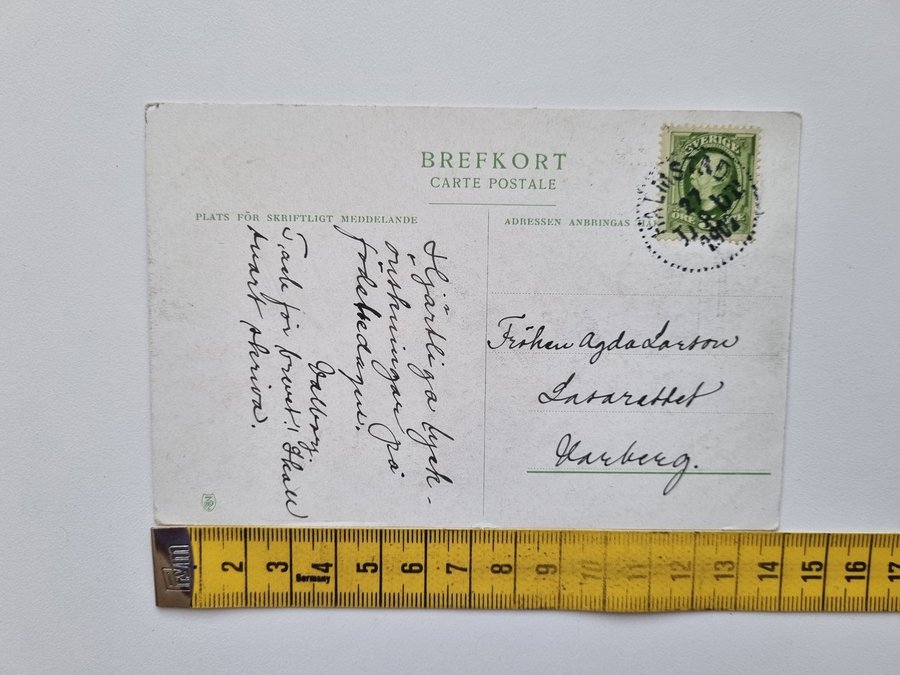 BREFKORT
CARTE POSTALE
PLATS FÖR SKRIFTLIGT MEDDELANDE
ADRESSEN ANBRINGAS HÄR
SVERIGE
HALMSTAD
27
1907
Hjärtliga lyck-
önskningar på
födelsedagen.
Valborg.
Tack för brevet! Skall
snart skriva.
Fröken Agda Larson
Lasarettet
Varberg.
2 3 4 5 6 7 8 9 10 11 12 13 14 15 16 17
Germany